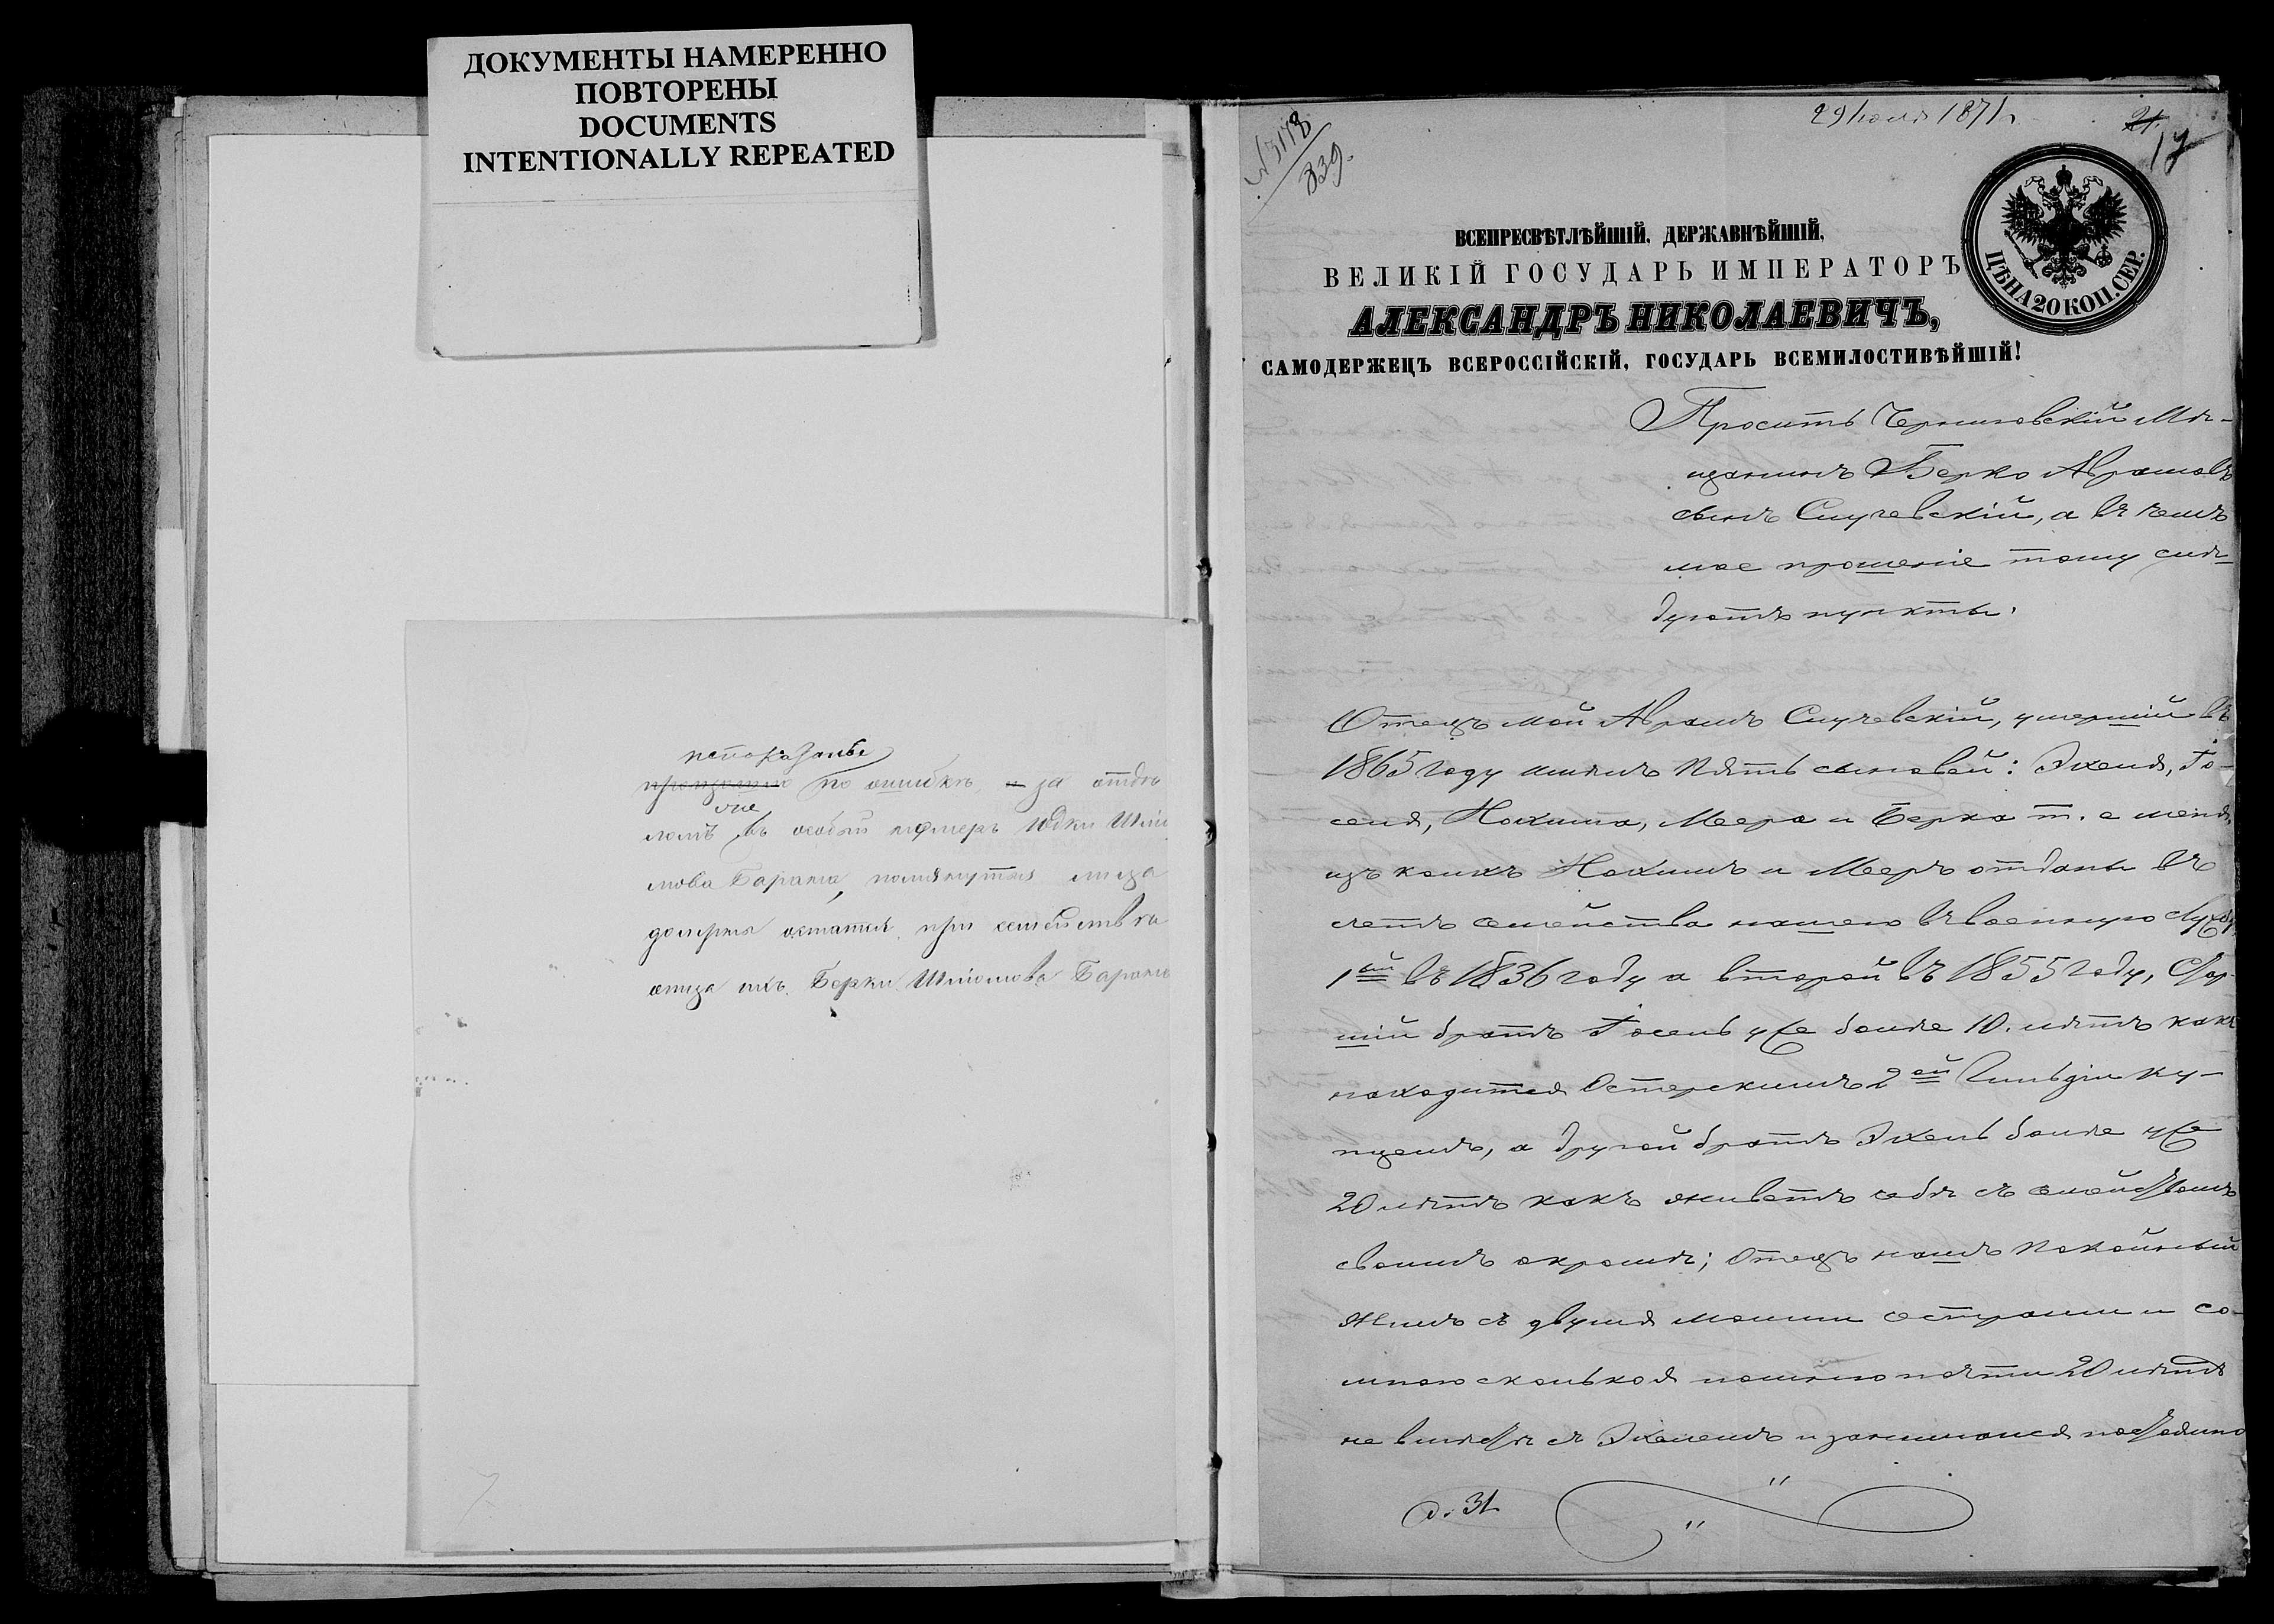 ДОКУМЕНТЫ НАМЕРЕННО
ПОВТОРЕНЫ
DOCUMENTS
INTENTIONALLY REPEATED
по ошибкѣ, и за отдѣ
въ особый нумеръ Юдки Шлио
мова Барана, помянутыя лица
должны остатся при семействѣ
отца ихъ Берки Шліомова Барана
29 Іюля 1871 г.
21.
17
№ 3178
339.
ВСЕПРЕСВѢТЛѢЙШІЙ, ДЕРЖАВНѢЙШІЙ,
ВЕЛИКІЙ ГОСУДАРЬ ИМПЕРАТОРЪ
АЛЕКСАНДРЪ НИКОЛАЕВИЧЪ,
САМОДЕРЖЕЦЪ ВСЕРОССІЙСКІЙ, ГОСУДАРЬ ВСЕМИЛОСТИВѢЙШІЙ!
ЦѢНА 20 КОП. СЕР.
Проситъ Черниговскій Мѣ-
щанинъ Берко Аврамовъ
сынъ Случевскій, а въ чемъ
мое прошеніе тому слѣ-
дуютъ пункты:
Отецъ мой Аврамъ Случевскій, умершій въ
1865 году имѣлъ пять сыновей: Эхеля, Іо-
селя, Нохима, Меера и Берка т. е меня,
изъ коихъ Нохимъ и Мееръ отданы въ
счетъ семейства нашего въ военную службу
1ый въ 1836 году а второй въ 1855 году, Стар-
шій братъ Іосель уже болѣе 10. лѣтъ какъ
находится Остерскимъ 2ой Гильдіи ку-
пцемъ, а другой братъ Эхель болѣе уже
20 лѣтъ какъ живетъ себѣ съ семействомъ
своимъ окромѣ; Отецъ нашъ покойный
жилъ съ двумя моими сестрами и со
мною сколько я помню почти 20 лѣтъ
не вмѣстѣ съ Эхелемъ и занимался